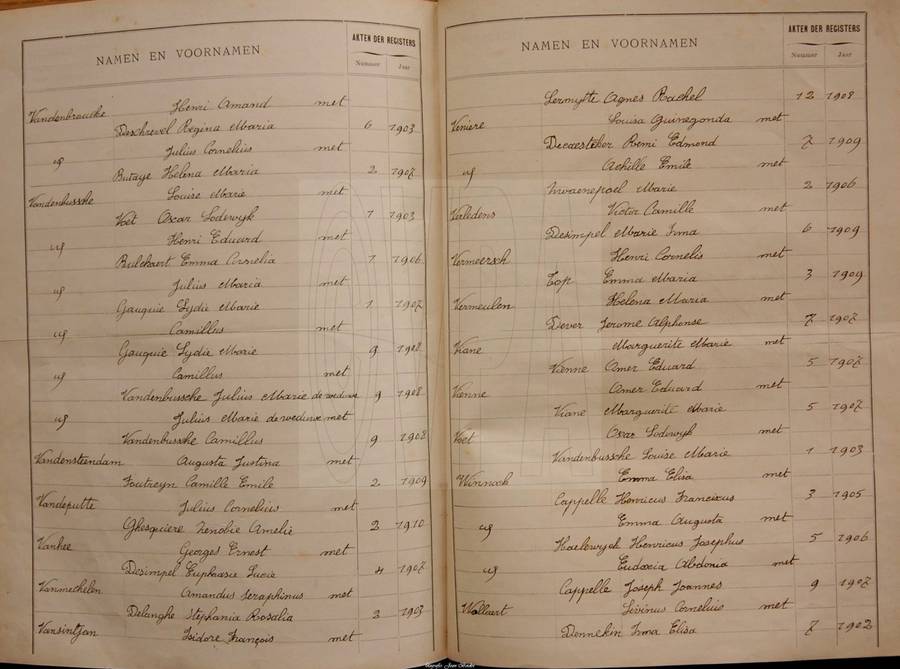 NAMEN EN VOORNAMEN
AKTEN DER REGISTERS
Nummer Jaar
Vandenbroucke Henri Amand met
Deschrevel Regina Maria 6 1903
id Julius Cornelius met
Butaye Helena Maria 2 1907
Vandenbussche Louise Marie met
Voet Oscar Lodewyk 1 1903
id Henri Eduard met
Bulckaert Emma Cornelia 1 1906
id Julius Maria met
Gauquie Lydie Marie 1 1907
id Camillus met
Gauquie Lydie Marie 9 1908
id Camillus met
Vandenbussche Julius Marie de weduwe 9 1908
id Julius Marie de weduwe met
Vandenbussche Camillus 9 1908
Vandensteendam Augusta Justina met
Foutreyn Camille Emile 2 1909
Vandeputte Julius Cornelius met
Ghesquiere Zenobie Amelie 2 1910
Vanhee Georges Ernest met
Desimpel Euphrasie Lucie 4 1907
Vanmechelen Amandus Seraphinus met
Delanghe Stephania Rosalia 2 1903
Vansintjan Isidore François met
NAMEN EN VOORNAMEN
AKTEN DER REGISTERS
Nummer Jaar
Lermytte Agnes Rachel 12 1908
Veniere Louisa Guinegonda met
Decaesteker Remi Edmond 7 1909
id Achille Emile met
Marie 2 1906
Verledens Victor Camille met
Desimpel Marie Irma 6 1909
Vermeersch Henri Cornelis met
Top Emma Maria 3 1909
Vermeulen Helena Maria met
Dever Jerome Alphonse 7 1907
Viane Marguerite Marie met
Vienne Omer Eduard 5 1907
Vienne Omer Eduard met
Viane Marguerite Marie 5 1907
Voet Oscar Lodewyk met
Vandenbussche Louise Marie 1 1903
Winnock Emma Elisa met
Cappelle Henricus Franciscus 3 1905
id Emma Augusta met
Haelewyck Henricus Josephus 5 1906
id Eudoxia Abdonia met
Cappelle Joseph Joannes 9 1907
Wollaert Livinus Corneluis met
Dennekin Irma Elisa 7 1902